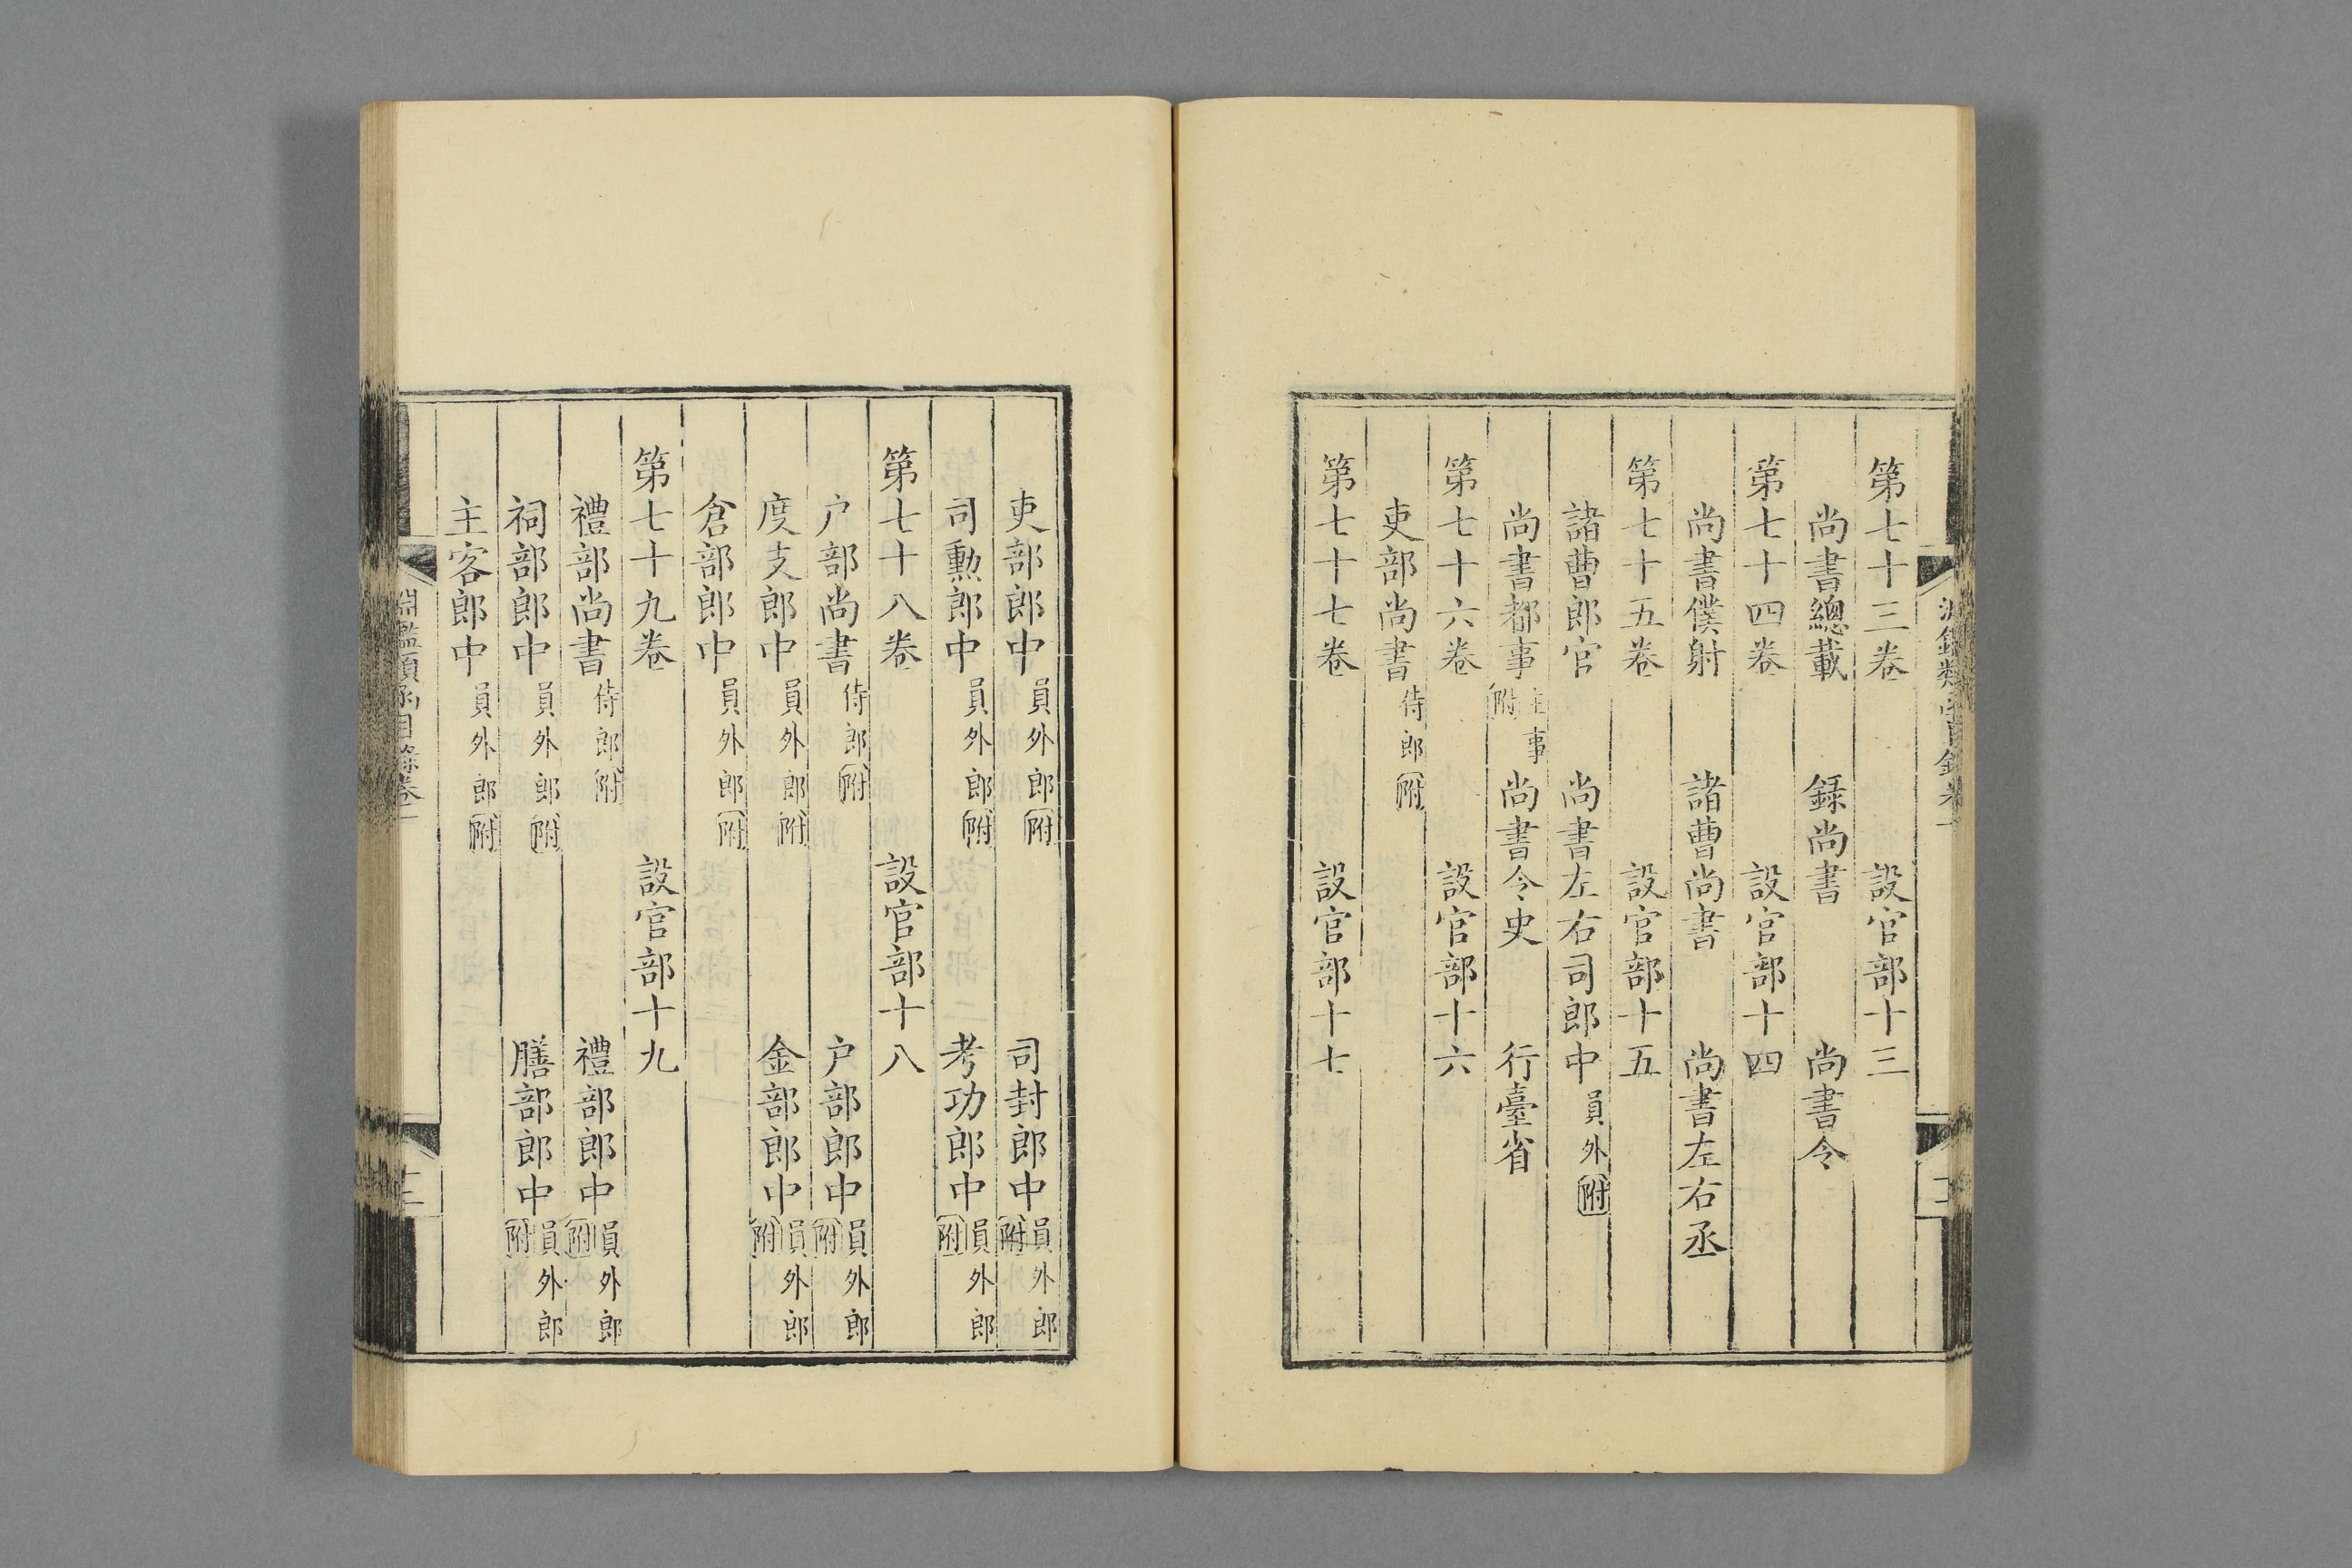 第七十三卷 設官部十三
尚書總載 録尚書 尚書令
第七十四卷 設官部十四
尚書僕射 諸曹尚書 尚書左右丞
第七十五卷 設官部十五
諸曹郎官 尚書左右司郎中 員外附
尚書都事 主事附 尚書令史 行臺省
第七十六卷 設官部十六
吏部尚書 侍郎附
第七十七卷 設官部十七
吏部郎中 員外郎附 司封郎中 員外郎附
司勲郎中 員外郎附 考功郎中 員外郎附
第七十八卷 設官部十八
户部尚書 侍郎附 户部郎中 員外郎附
度支郎中 員外郎附 金部郎中 員外郎附
倉部郎中 員外郎附
第七十九卷 設官部十九
禮部尚書 侍郎附 禮部郎中 員外郎附
祠部郎中 員外郎附 膳部郎中 員外郎附
主客郎中 員外郎附
淵鑑類函目錄卷一